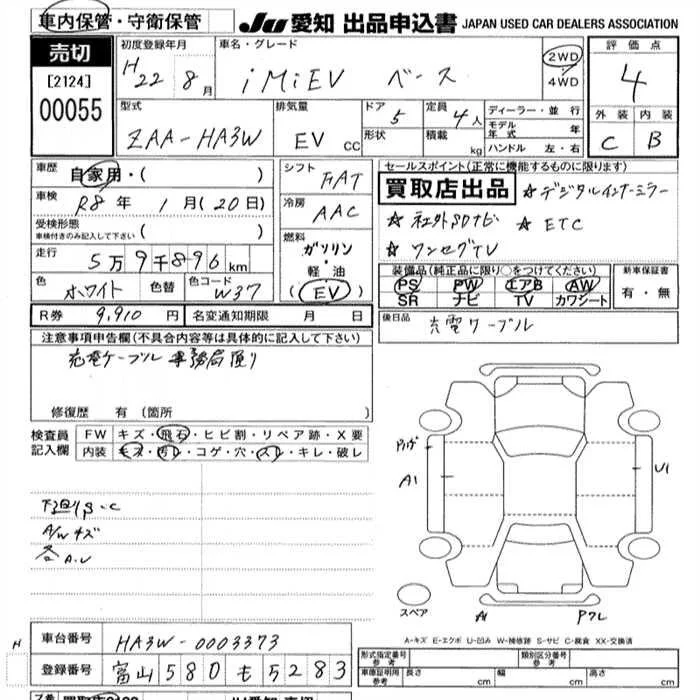 車内保管・守衛保管
JU 愛知 出品申込書 JAPAN USED CAR DEALERS ASSOCIATION
売切
[2124]
00055
初度登録年月
H22 8月
車名・グレード
iMiEV ベース
2WD
4WD
評価点
4
外装 内装
C B
型式
ZAA-HA3W
排気量
EV cc
ドア 5
形状
定員 4人
積載 kg
ディーラー・並行
モデル年式 年
ハンドル 左・右
車歴
自家用・( )
車検 R8年 1月(20日)
受検形態
車検付きのみ記入して下さい ( )
走行 5万9千896km
色 ホワイト 色替 色コード W37
シフト FAT
冷房 AAC
燃料
ガソリン
・
軽油
(EV)
セールスポイント(正常に機能するものに限ります)
買取店出品 ☆デジタルインナーミラー
☆社外SDナビ ☆ETC
☆ワンセグTV
装備品(純正品に限り○をつけてください)
PS PW エアB AW
SR ナビ TV カワシート
新車保証書
有・無
R券 9,910円 名変通知期限 月 日
後日品 充電ケーブル
注意事項申告欄(不具合内容等は具体的に記入して下さい)
充電ケーブル 事務局預り
修復歴 有(箇所 )
検査員記入欄
FW キズ・飛石・ヒビ割・リペア跡・X要
内装 キズ・汚レ・コゲ・穴・スレ・キレ・破レ
下廻りS・C
A/Wキズ
各A.U
A1
U1
スペア
A1
A-キズ E-エクボ U-凹み W-補修跡 S-サビ C-腐食 XX-交換済
H
車台番号 HA3W-0003373
登録番号 富山 580 も 5283
形式指定番号 参考
類別区分番号 参考
車庫証明用 参考 長さ cm 幅 cm 高さ cm